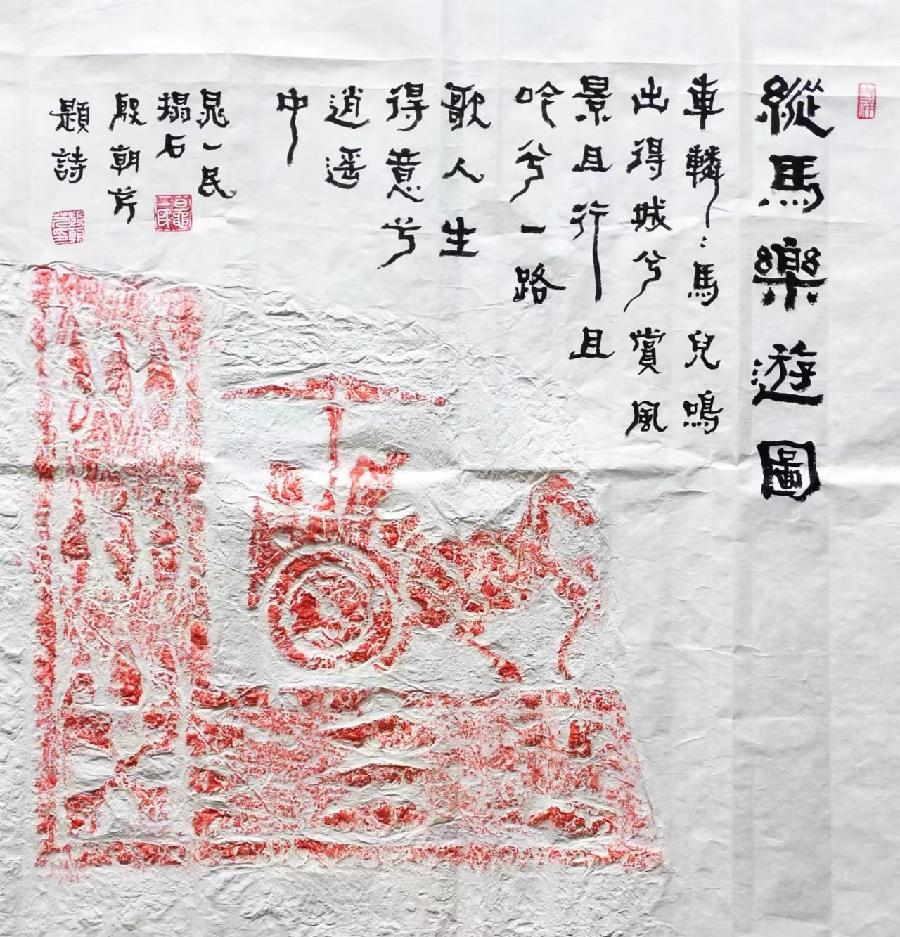 縱馬樂遊圖
車轔〻馬兒鳴
出得城兮賞風
景且行且
吟兮一路
歌人生
得意兮
逍遥
中
晁一民
搨石
殷朝芹
題詩